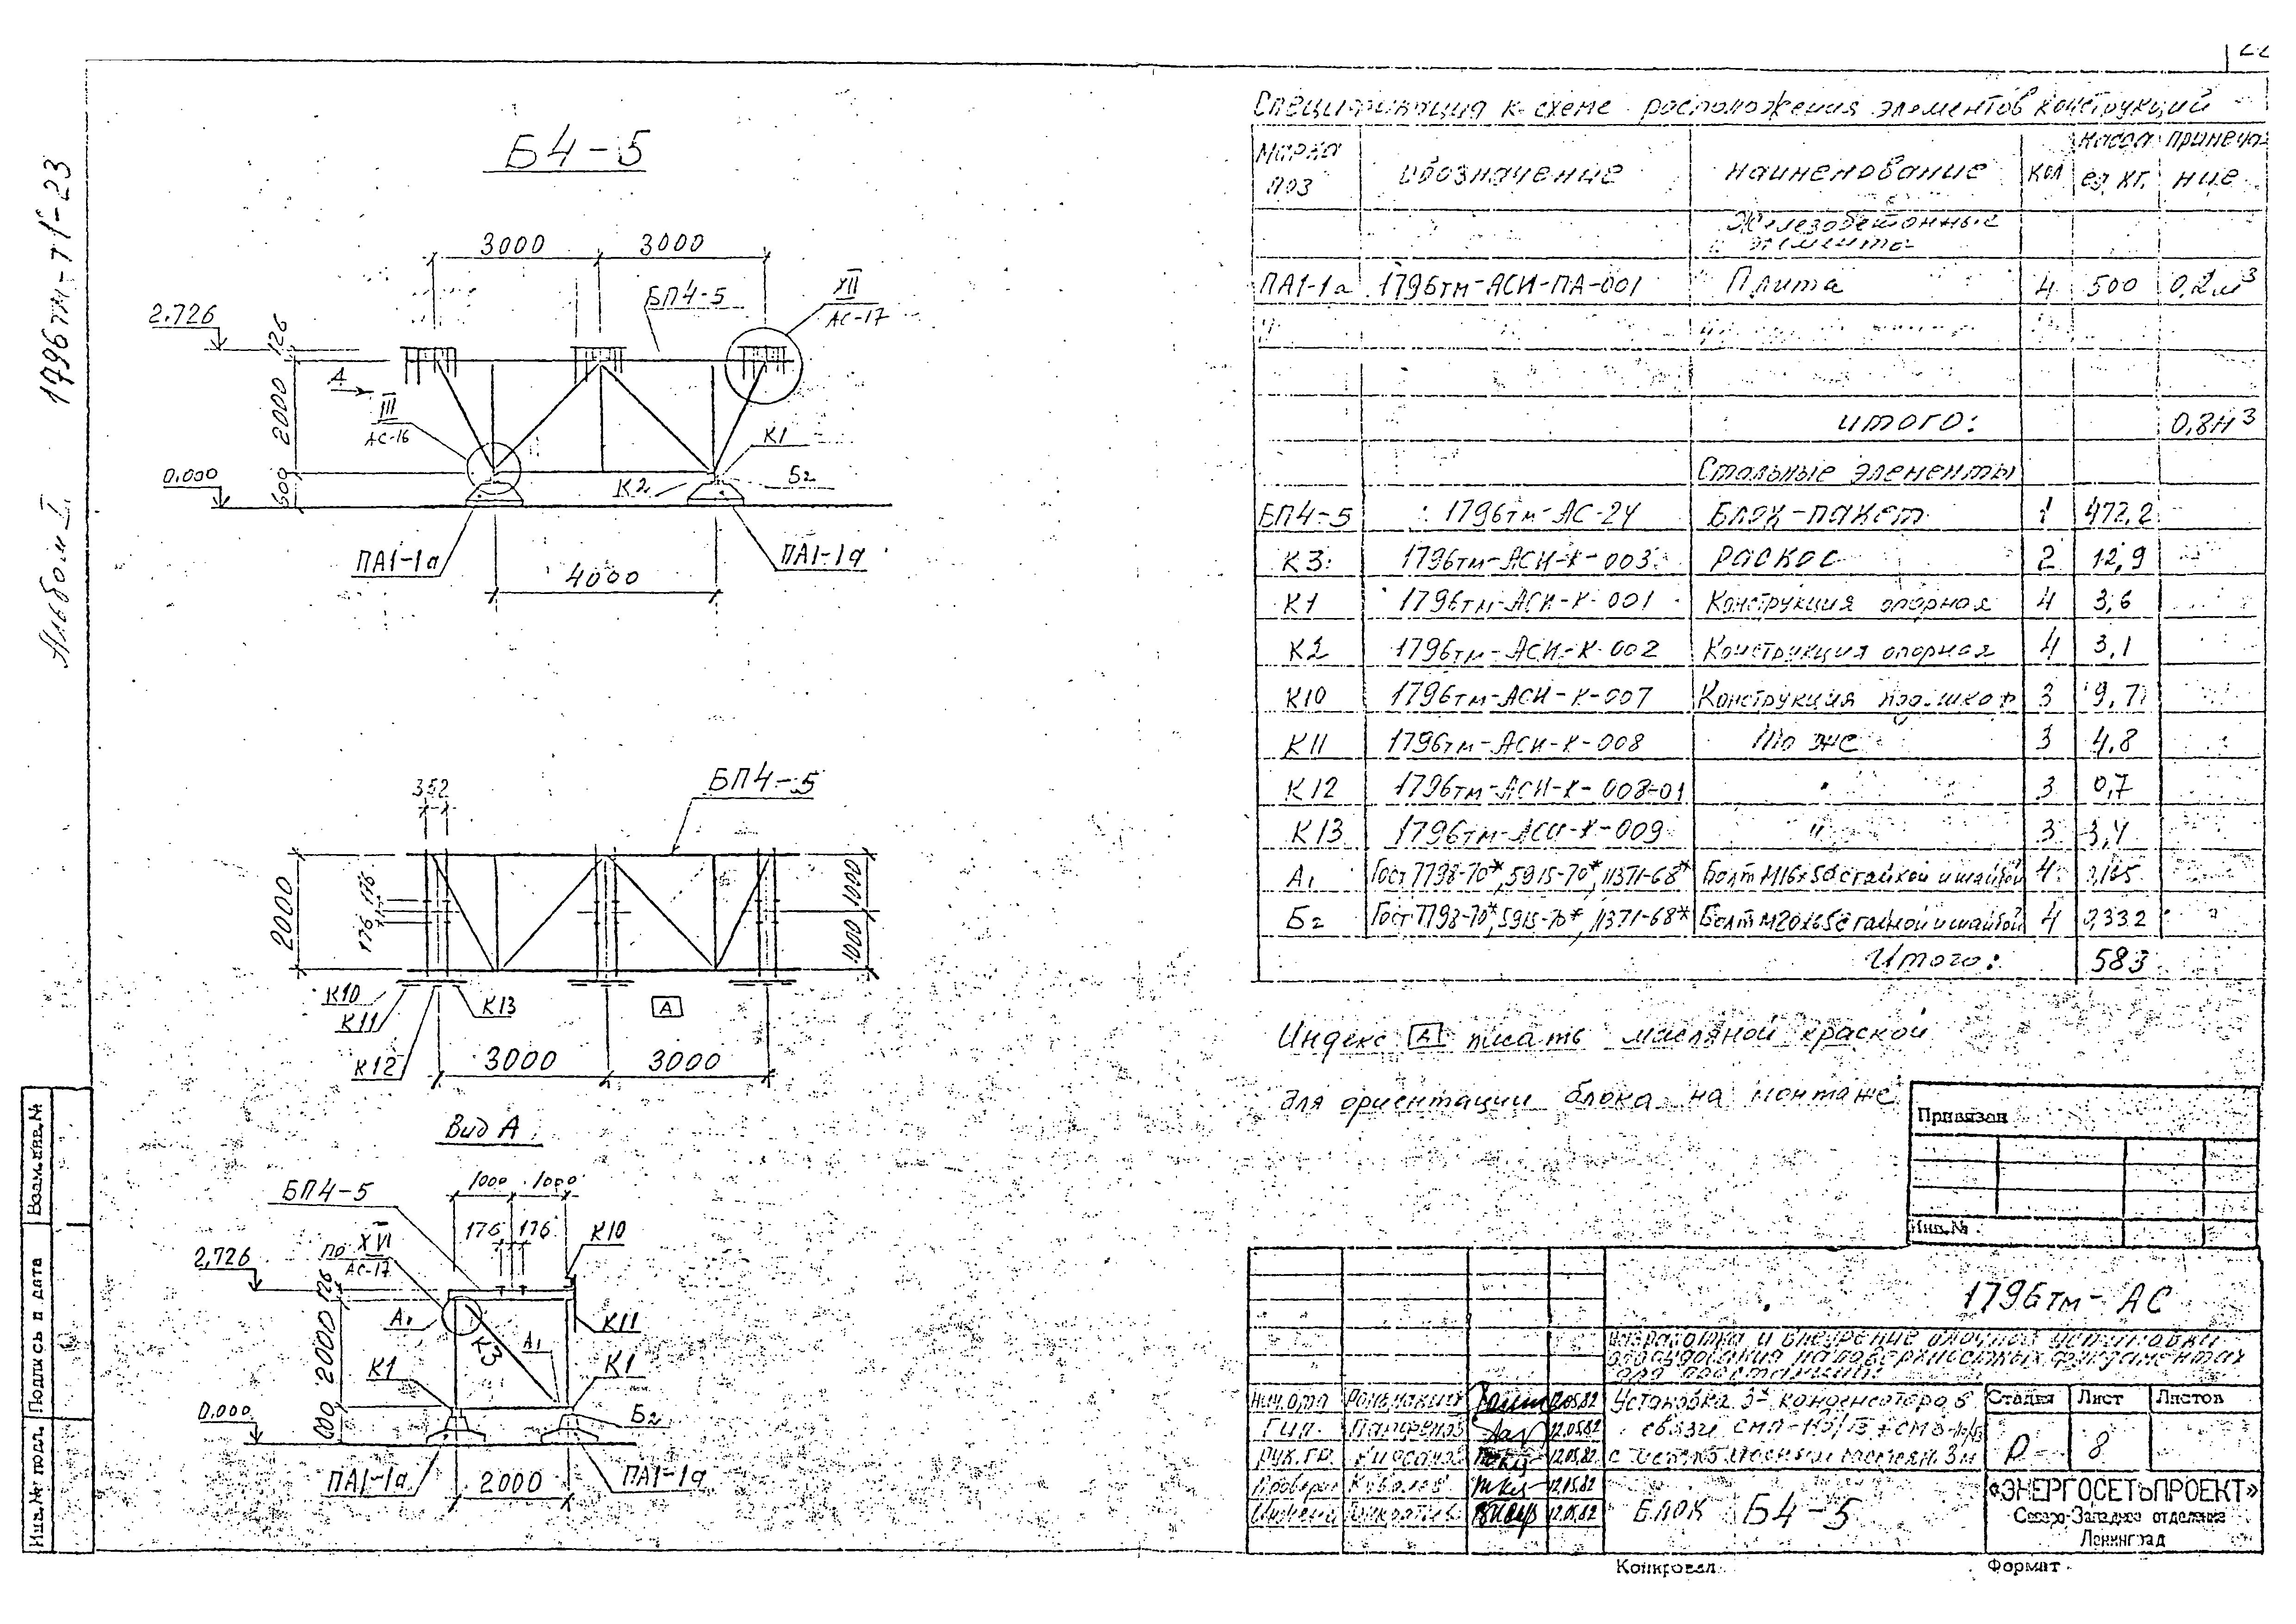 Альбом I. 1796тм-т1-23
Б4-5
3000 3000
БП4-5
XII
АС-17
2.726
126
2000
600
А
III
АС-16
К1
К2
Б2
0.000
ПА1-1а
ПА1-1а
4000
352
БП4-5
2000
176 176
1000
1000
К10
К11
К12
К13
А
3000 3000
Вид А
БП4-5
1000 1000
176 176
К10
по XVI
АС-17
2,726
126
2000
600
А1
К3
А1
К11
К1
К1
Б2
0.000
ПА1-1а
ПА1-1а
2000
Спецификация к схеме расположения элементов конструкций
Марка поз обозначение наименование кол Масса ед. кг. примечание
Железобетонные элементы
ПА1-1а 1796тм-АСИ-ПА-001 Плита 4 500 0,2м³
итого: 0,8м³
Стальные элементы
БП4-5 1796тм-АС-24 Блок-пакет 1 472,2
К3 1796тм-АСИ-К-003 раскос 2 12,9
К1 1796тм-АСИ-К-001 Конструкция опорная 4 3,6
К2 1796тм-АСИ-К-002 Конструкция опорная 4 3,1
К10 1796тм-АСИ-К-007 Конструкция под шкаф 3 9,7
К11 1796тм-АСИ-К-008 То же 3 4,8
К12 1796тм-АСИ-К-008-01 " 3 0,7
К13 1796тм-АСИ-К-009 " 3 3,4
А1 Гост 7798-70*, 5915-70*, 11371-68* Болт М16х50 с гайкой и шайбой 4
Б2 Гост 7798-70*, 5915-70*, 11371-68* Болт М20х65 с гайкой и шайбой 4 0,332
Итого: 583
Индекс А писать масляной краской
для ориентации блока на монтаже
Привязан
Инв.№
1796тм-АС
Разработка и внедрение блочной установки
оборудования на поверхностных фундаментах
для подстанций
Нич.отд 12.05.82
Гип. 12.05.82
Рук.гр. 12.05.82
Провер. Ковалев 12.05.82
Инжен. 12.05.82
Установка 3х конденсаторов
связи
с
Стадия Лист Листов
Р 8
Блок Б4-5
«ЭНЕРГОСЕТЬПРОЕКТ»
Северо-Западное отделение
Ленинград
Копировал
Формат
Инв.№ подл. Подпись и дата Взам.инв.№